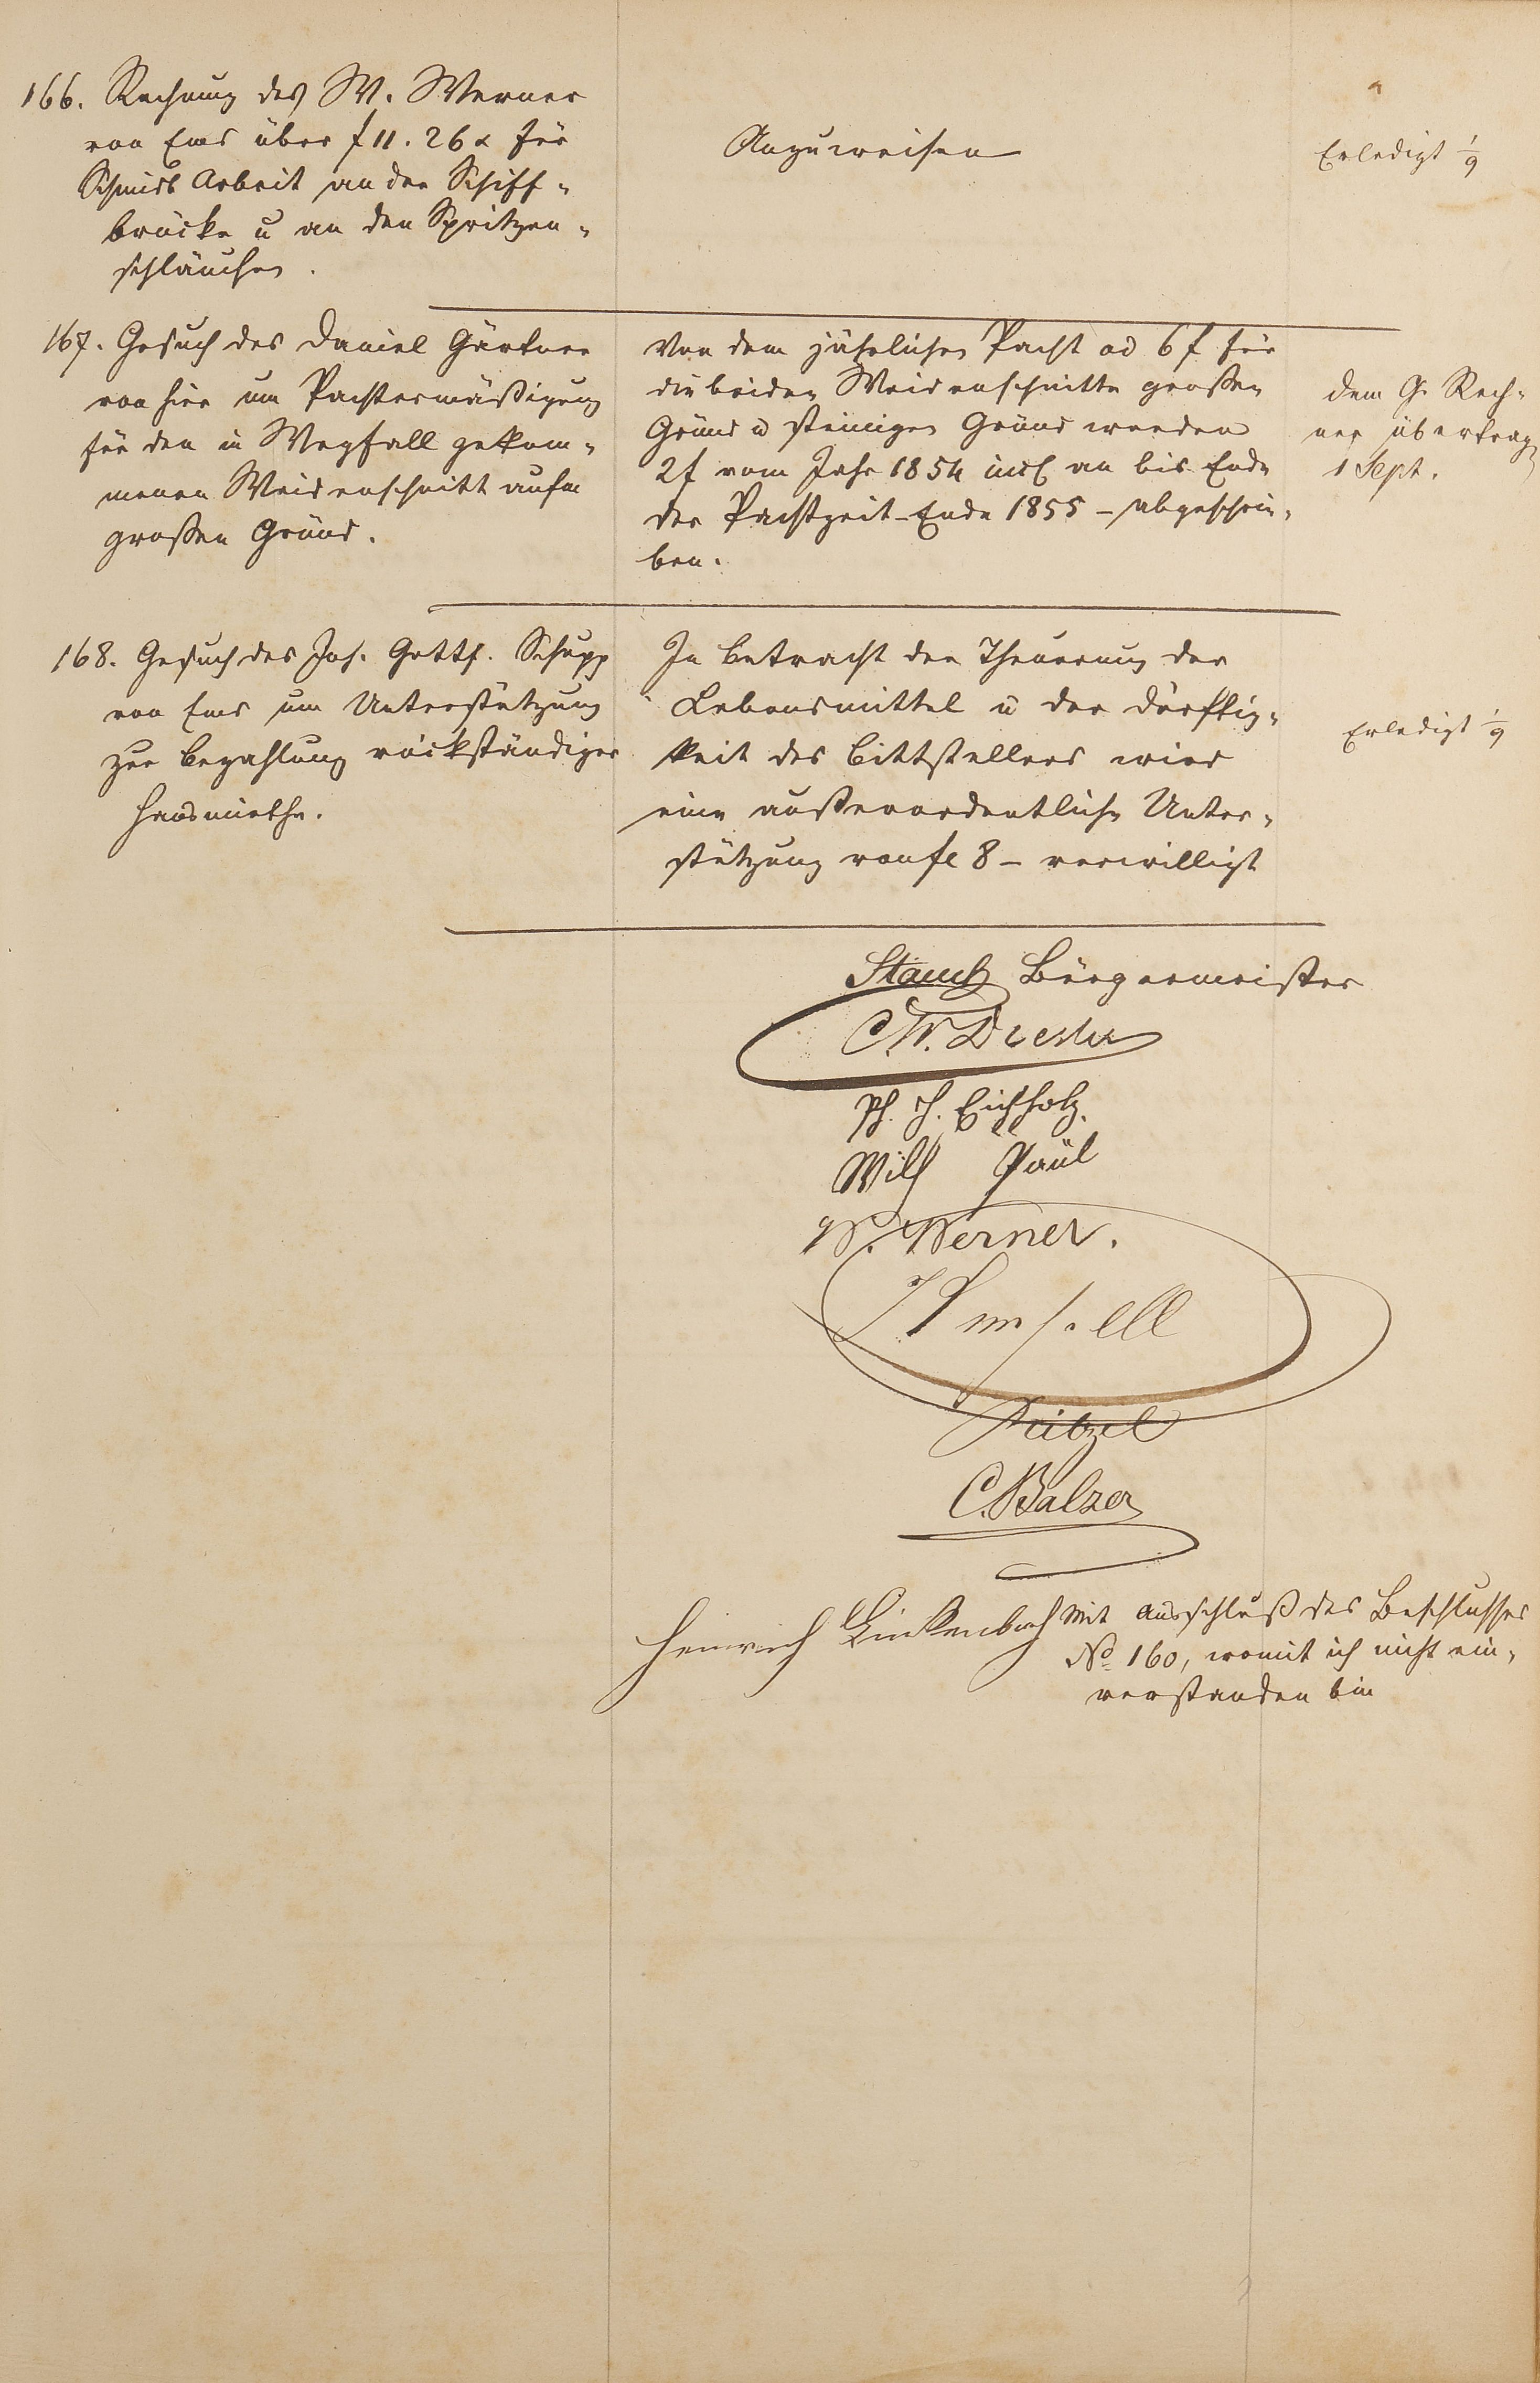 166. Rechnung des W. Werner
von Ems über f 11. 26 x für
Schmidt Arbeit an der Schiff-
brücke u an den Spritzen-
schläuchen.
Anzuweisen
Erledigt 1/9
167. Gesuch des Daniel Gärtner
von hier um Pachtermäßigung
für den in Wegfall gekom-
menen Weidenschnitt aufm
großen Grund.
Von dem jährlichen Pacht ad 6 f für
die beiden Weidenschnitte großen
Grund u steinigen Grund werden
2 f vom Jahr 1854 incl an bis Ende
der Pachtzeit - Ende 1855 - abgeschrie-
ben.
dem G. Rech-
ner übertrag
1 Sept.
168. Gesuch des Joh. Gottf. Schupp
von Ems um Unterstützung
zur Bezahlung rückständiger
Hausmiethe.
In Betracht der Theuerung der
Lebensmittel u der Dürftig-
keit des Bittstellers wird
eine außerordentliche Unter-
stützung von fl 8 - verwilligt
Erledigt 1/9
Stauch Bürgermeister
Ph. H. Eichholz.
Wilh Paul
W. Werner.
C. Balzer
Heinrich Linkenbach Mit Ausschluß des Beschlusses
No 160, womit ich nicht ein-
verstanden bin